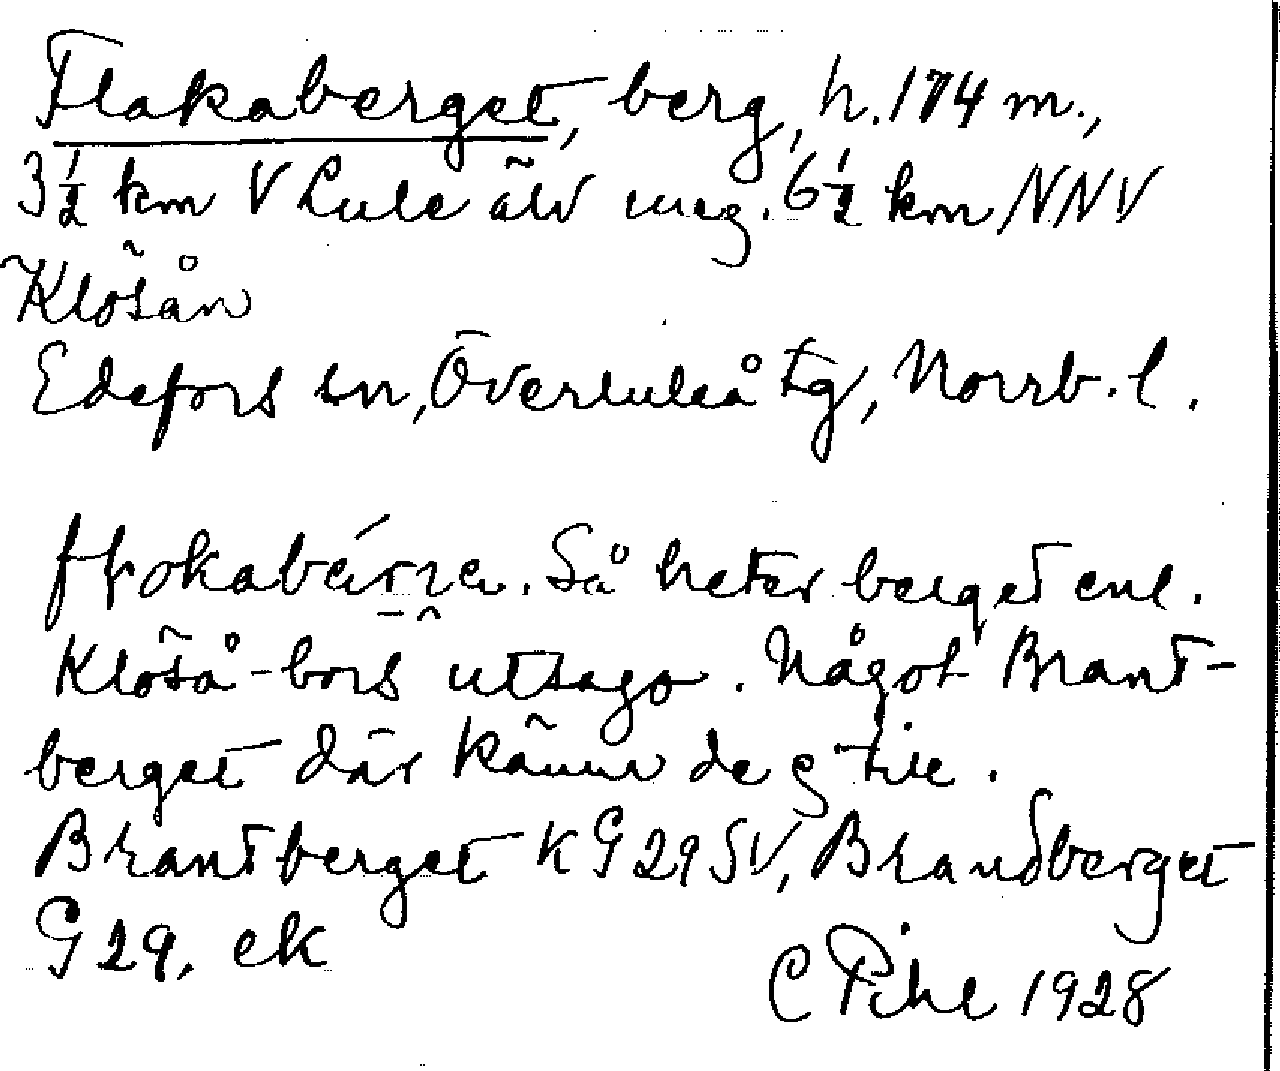 Flakaberget, berg, h. 174 m.,
3½ km V Lule älv meg. 6½ km NNV
KlöSån
Edefors sn, Överluleå tg, Norrb. l.
Så heter berget enl.
Klöså-bors utsago. Något Brant-
berget där känner de ej till.
Brantberget KG 29 SV, Brandberget
G 29. ek
C Pihl 1928